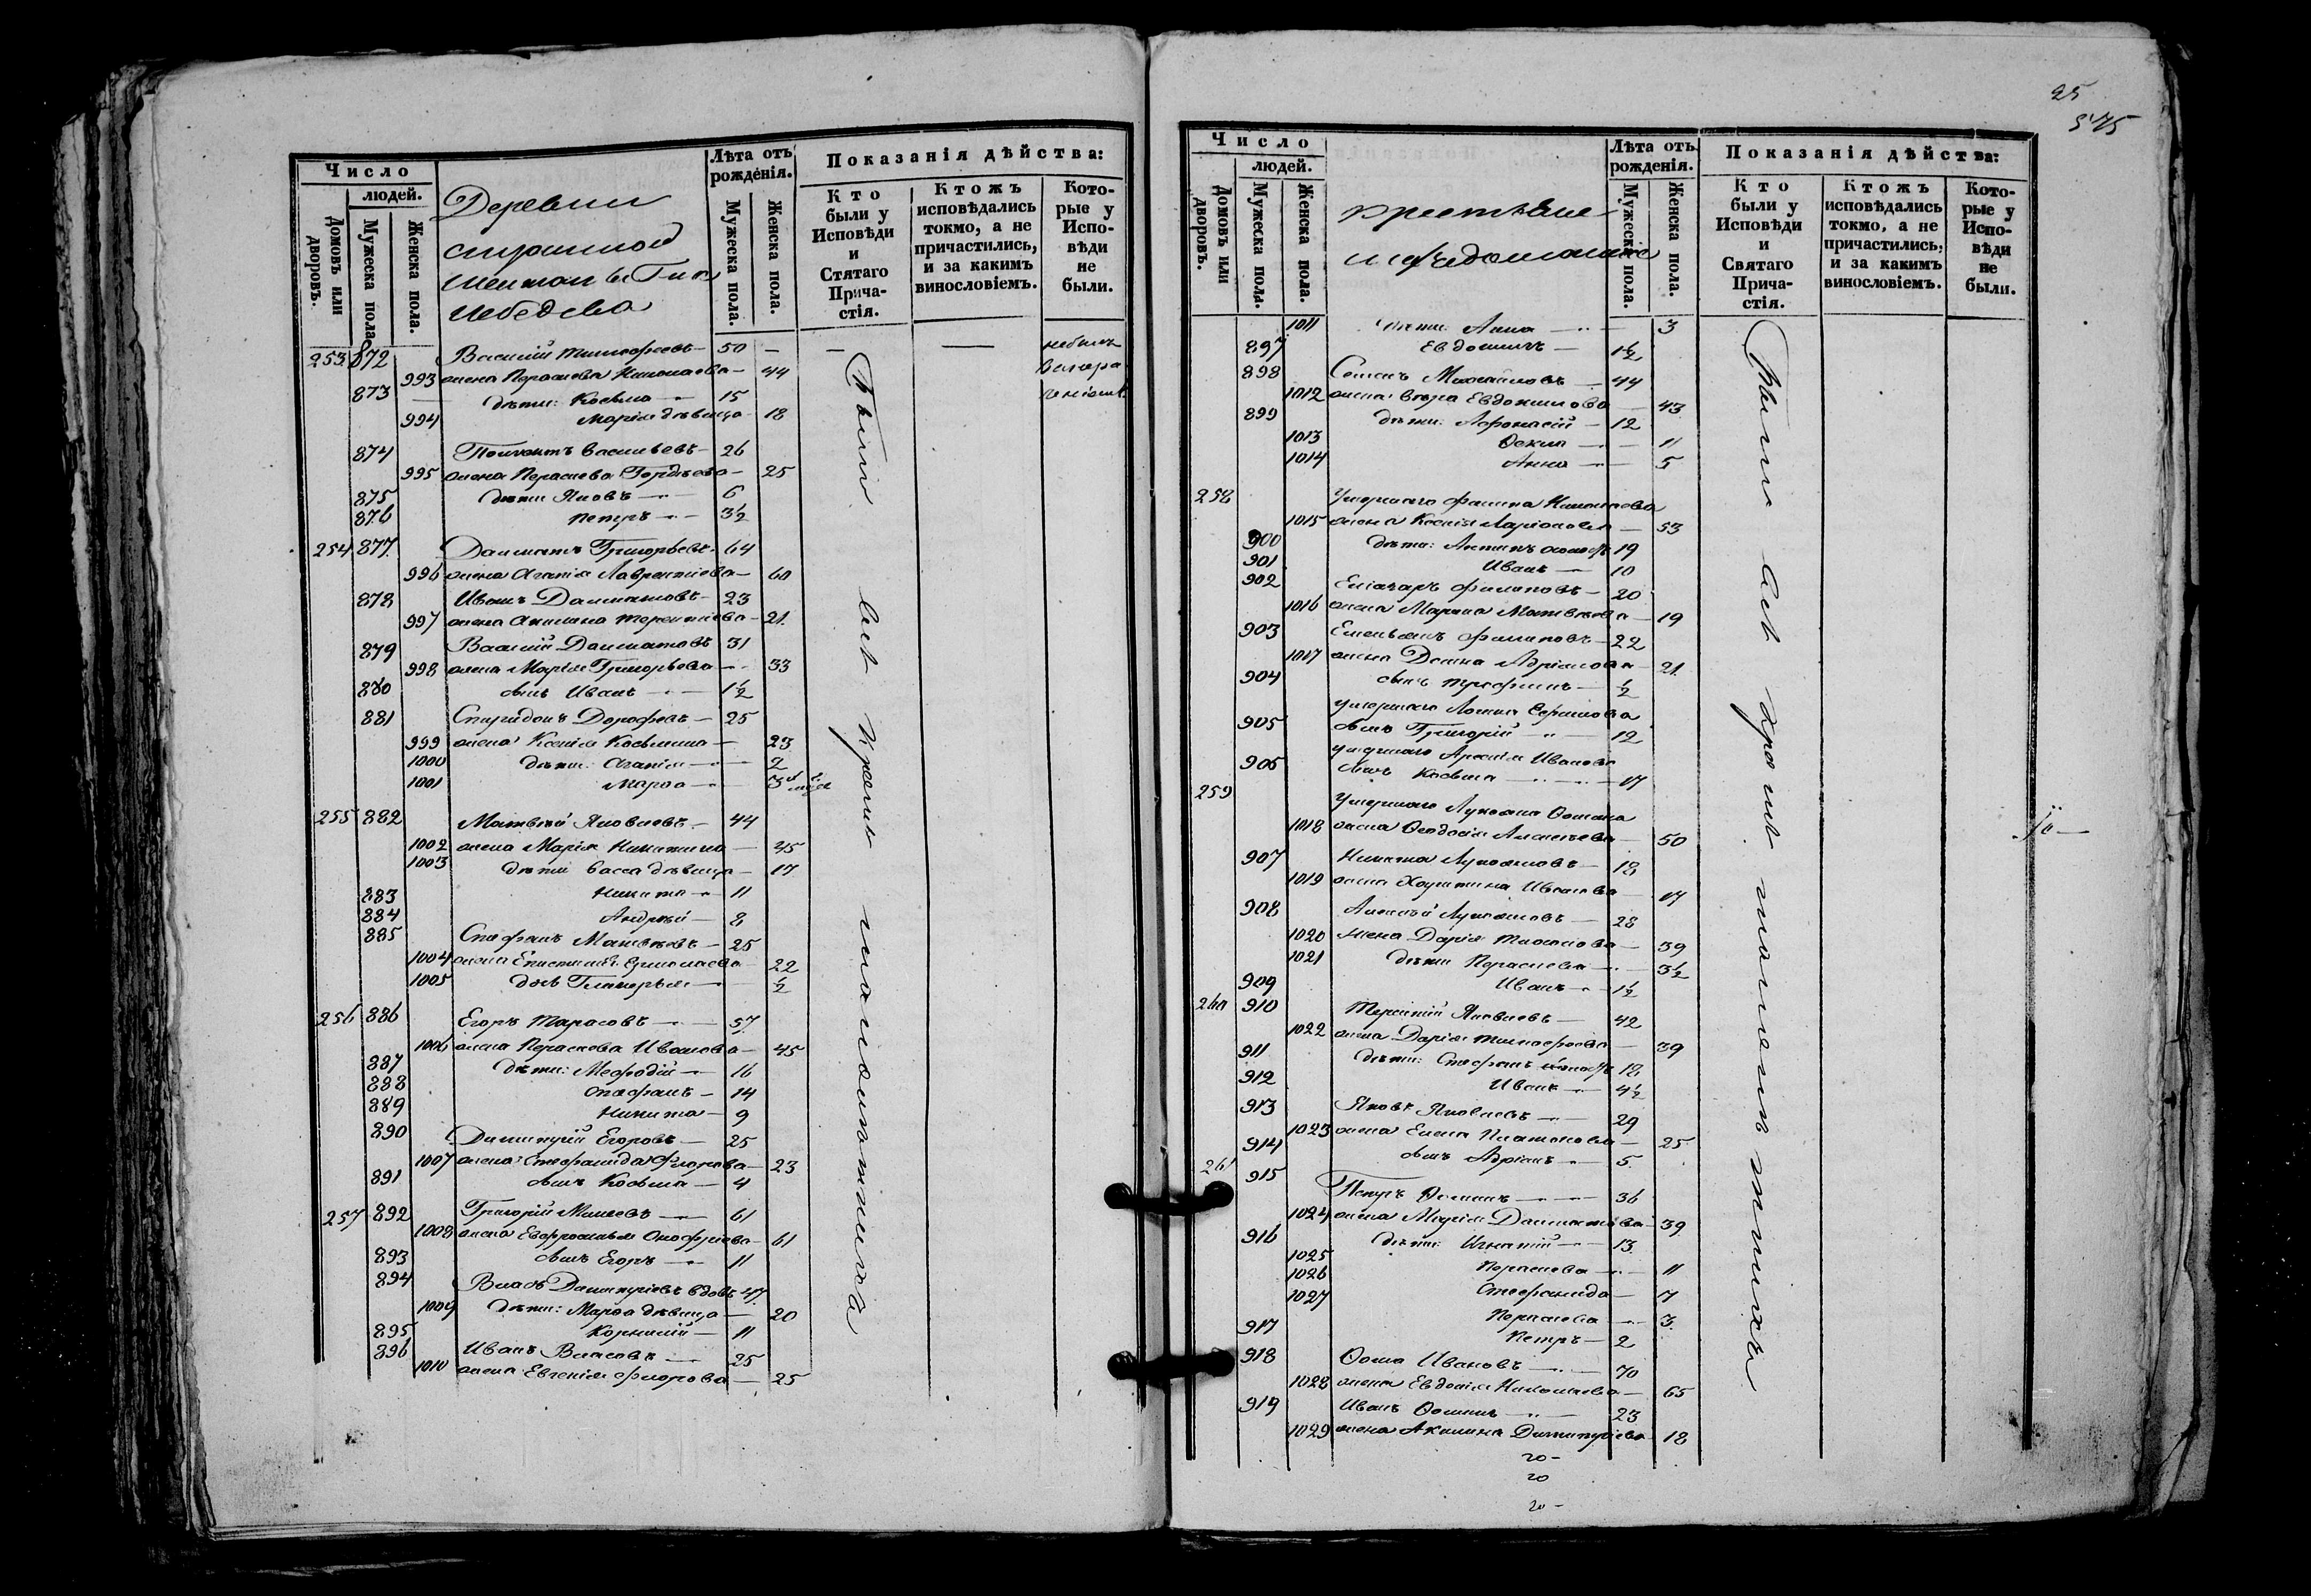 Число
людей.
Домовъ или дворовъ.
Мужеска пола.
Женска пола.
Деревни
Лѣта отъ рожденія.
Мужеска пола.
Женска пола.
Показанія дѣйства:
Кто были у Исповѣди и Святаго Причастія.
Ктожъ исповѣдались токмо, а не причастились, и за какимъ винословіемъ.
Которые у Исповѣди не были.
253 872 Василій Тимофеевъ — 50 — — —
993 жена Параскева Николаева — 44
873 дѣти: Косьма — 15
994 Марія дѣвица — 18
874 Васильевъ — 26
995 жена Параскева Гордѣева — 25
875 дѣти Яковъ — 6
876 Петръ — 3½
254 877 Далматъ Григорьевъ — 64
996 жена Агапія Лаврентіева — 60
878 Иванъ Далматовъ — 23
997 жена Акилина Терентіева — 21
879 Василій Далматовъ 31
998 жена Марія Григорьева — 33
880 сынъ Иванъ — 1½
881 Спиридонъ Дорофеевъ — 25
999 жена Ксенія Косьмина — 23
1000 дѣти: Агапія — 2
1001 Марѳа — 3
255 882 Матвѣй Яковлевъ — 44
1002 жена Марія Никитина — 45
1003 дѣти Васса дѣвица — 17
883 Никита — 11
884 Андрей — 8
885 Стефанъ Матвѣевъ — 25
1004 жена — 22
1005 дочь Гликерія — ½
256 886 Егоръ Тарасовъ — 57
1006 жена Параскева Иванова — 45
887 дѣти: Меѳодій — 16
888 Стефанъ — 14
889 Никита — 9
890 Димитрій Егоровъ — 25
1007 жена Стефанида Флорова — 23
891 сынъ Косьма — 4
257 892 Григорій Моисеевъ — 61
1008 жена Евфросинья Онофріева — 61
893 сынъ Егоръ — 11
894 Власъ Димитріевъ вдовъ 47
1009 дѣти: Марѳа дѣвица — 20
895 Корнилій — 11
896 Иванъ Власовъ — 25
1010 жена Евгенія Флорова — 25
Были всѣ кромѣ
25
575
Число
людей.
Домовъ или дворовъ.
Мужеска пола.
Женска пола.
крестьяне
Лѣта отъ рожденія.
Мужеска пола.
Женска пола.
Показанія дѣйства:
Кто были у Исповѣди и Святаго Причастія.
Ктожъ исповѣдались токмо, а не причастились, и за какимъ винословіемъ.
Которые у Исповѣди не были.
1011 дѣти: Анна — 3
897 Евдокимъ — 1½
898 Семенъ Михайловъ — 44
1012 жена Вѣра Евдокимова — 43
899 дѣти: Афонасій — 12
1013 — 11
1014 Анна — 5
258 Умершаго Филипа Николаева
1015 жена Ксенія Ларіонова — 53
900 дѣти: Антипъ холостъ 19
901 Иванъ — 10
902 Елизаръ Филиповъ — 20
1016 жена Марина Матвѣева — 19
903 Емельянъ Филиповъ — 22
1017 жена Домна Адріанова — 21
904 сынъ Трофимъ — ½
905 сынъ Григорій — 12
умершаго Иванова
906 сынъ Косьма — 17
259 Умершаго Лукьяна
1018 жена Ѳеодосія Алексѣева — 50
907 Никита Лукьяновъ — 18
1019 жена Харитина Иванова — 17
908 Алексѣй Лукьяновъ — 28
1020 жена Дарія — 39
1021 дѣти Параскева — 3½
909 Иванъ — 1½
260 910 Терентій Яковлевъ — 42
1022 жена Дарія Тимофеева — 39
911 дѣти: Стефанъ холостъ 18
912 Иванъ — 4½
913 Яковъ Яковлевъ — 29
1023 жена Елена Платонова — 25
914 сынъ Адріанъ — 5
261 915 Петръ Ѳоминъ — 36
1024 жена Марія Далматова 39
916 дѣти: Игнатій — 13
1025 Параскева — 11
1026 Стефанида — 7
1027 Параскева — 3
917 Петръ — 2
918 Ѳома Ивановъ — 70
1028 жена Евдокія Николаева — 65
919 Иванъ Ѳоминъ — 23
1029 жена Акилина Димитріева — 18
20 —
20
20 —
Были всѣ кромѣ